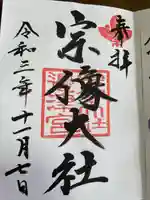 奉拝
宗像大社
令和三年十一月七日